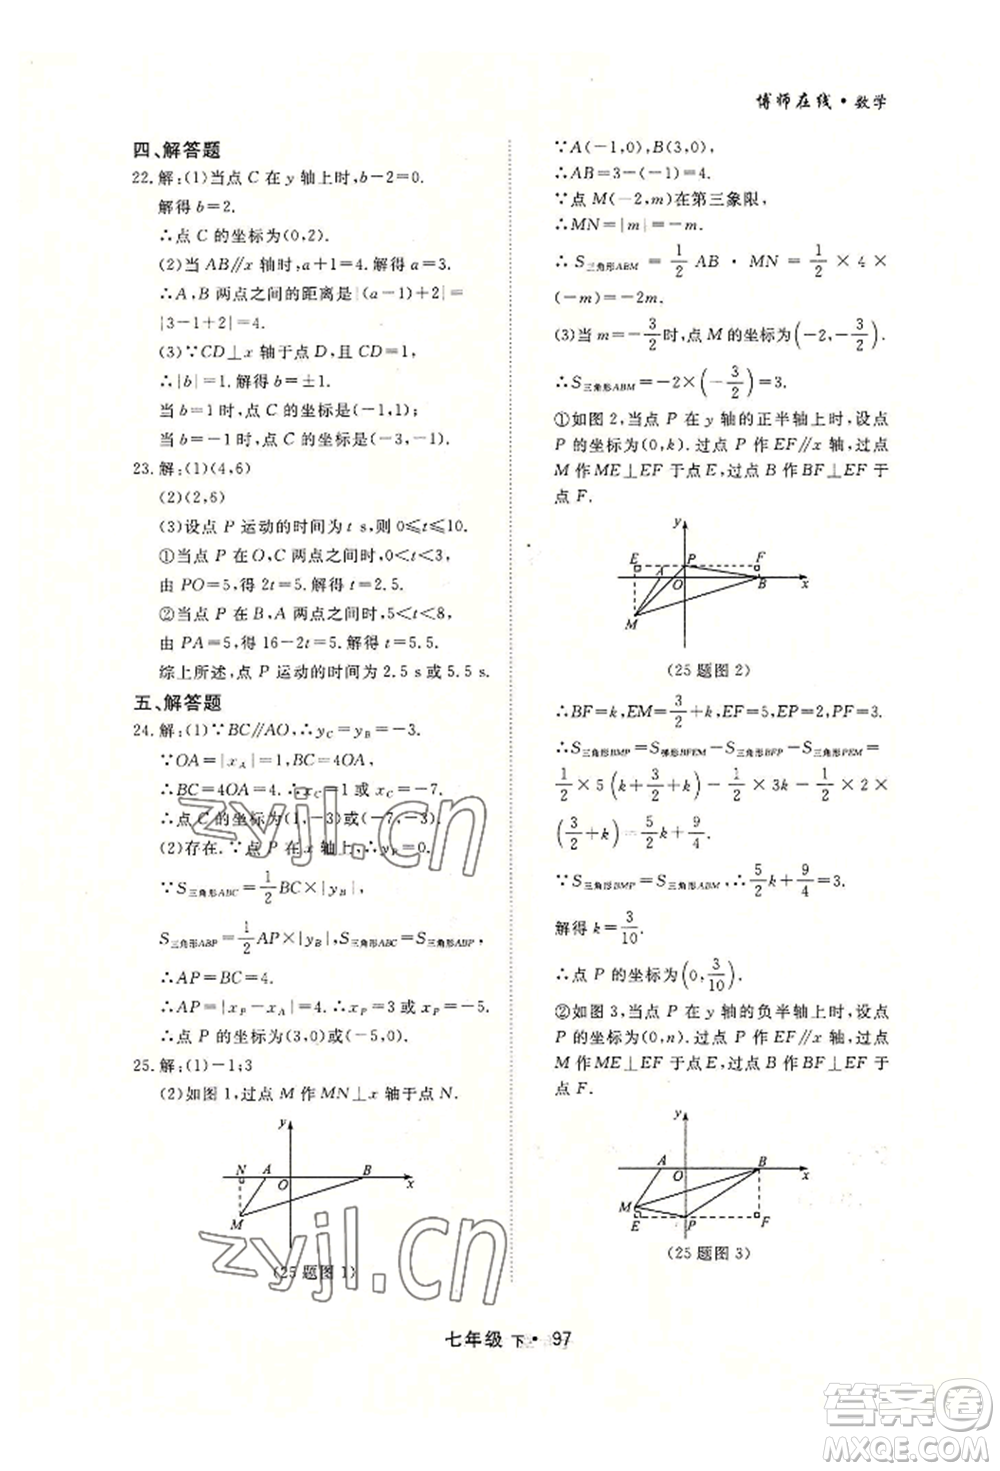 博师在线·数学
四、解答题
22.解:(1)当点 C 在 y 轴上时,b－2＝0.
解得 b＝2.
∴点 C 的坐标为(0,2).
(2)当 AB∥x 轴时,a＋1＝4.解得 a＝3.
∴A,B 两点之间的距离是|(a－1)＋2|＝
|3－1＋2|＝4.
(3)∵CD⊥x 轴于点 D,且 CD＝1,
∴|b|＝1.解得 b＝±1.
当 b＝1 时,点 C 的坐标是(－1,1);
当 b＝－1 时,点 C 的坐标是(－3,－1).
23.解:(1)(4,6)
(2)(2,6)
(3)设点 P 运动的时间为 t s,则 0⩽t⩽10.
①当点 P 在 O,C 两点之间时,0<t<3,
由 PO＝5,得 2t＝5.解得 t＝2.5.
②当点 P 在 B,A 两点之间时,5<t<8,
由 PA＝5,得 16－2t＝5.解得 t＝5.5.
综上所述,点 P 运动的时间为 2.5 s或 5.5 s.
五、解答题
24.解:(1)∵BC∥AO,∴y_C＝y_B＝－3.
∵OA＝|x_A|＝1,BC＝4OA,
∴BC＝4OA＝4.∴x_C＝1 或 x_C＝－7.
∴点 C 的坐标为(1,－3)或(－7,－3).
(2)存在.∵点 P 在 x 轴上,∴y_P＝0.
∵S三角形ABC＝1/2 BC×|y_B|,
S三角形ABP＝1/2 AP×|y_B|,S三角形ABC＝S三角形ABP,
∴AP＝BC＝4.
∴AP＝|x_P－x_A|＝4.∴x_P＝3 或 x_P＝－5.
∴点 P 的坐标为(3,0)或(－5,0).
25.解:(1)－1;3
(2)如图 1,过点 M 作 MN⊥x 轴于点 N.
y
N A O B x
M
(25 题图 1)
∵A(－1,0),B(3,0),
∴AB＝3－(－1)＝4.
∵点 M(－2,m)在第三象限,
∴MN＝|m|＝－m.
∴S三角形ABM＝1/2 AB·MN＝1/2×4×
(－m)＝－2m.
(3)当 m＝－3/2时,点 M 的坐标为(－2,－3/2).
∴S三角形ABM＝－2×(－3/2)＝3.
①如图 2,当点 P 在 y 轴的正半轴上时,设点
P 的坐标为(0,k).过点 P 作 EF∥x 轴,过点
M 作 ME⊥EF 于点 E,过点 B 作 BF⊥EF 于
点 F.
y
E A P F
O B x
M
(25 题图 2)
∴BF＝k,EM＝3/2＋k,EF＝5,EP＝2,PF＝3.
∴S三角形BMP＝S梯形BFEM－S三角形BFP－S三角形PEM＝
1/2×5(k＋3/2＋k)－1/2×3×k－1/2×2×
(3/2＋k)＝5/2k＋9/4.
∵S三角形BMP＝S三角形ABM,∴5/2k＋9/4＝3.
解得 k＝3/10.
∴点 P 的坐标为(0,3/10).
②如图 3,当点 P 在 y 轴的负半轴上时,设点
P 的坐标为(0,n).过点 P 作 EF∥x 轴,过点
M 作 ME⊥EF 于点 E,过点 B 作 BF⊥EF 于
点 F.
y
A O B x
M
E P F
(25 题图 3)
zyjl.cn
zyjl.cn
七年级 下·97
答案圈
MXQE.COM